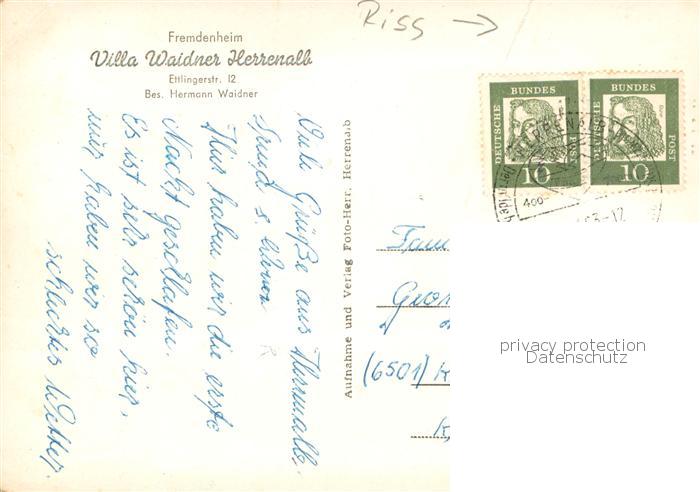 Riss →
Fremdenheim
Villa Waidner Herrenalb
Ettlingerstr. 12
Bes. Hermann Waidner
Viele Grüße aus Herrenalb.
Hier haben wir die erste
Nacht geschlafen.
Es ist sehr schön hier,
nur haben wir so
schlechtes Wetter.
Aufnahme und Verlag Foto-Herr, Herrenalb
DEUTSCHE BUNDESPOST
10
DEUTSCHE BUNDESPOST
10
Fam
Geor
(6501)
privacy protection
Datenschutz